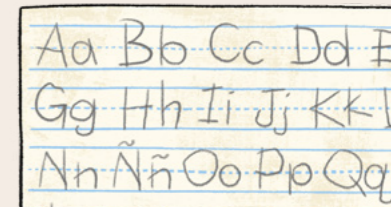 Aa Bb Cc Dd E
Gg Hh Ii Jj Kk
Nn Ññ Oo Pp Qq